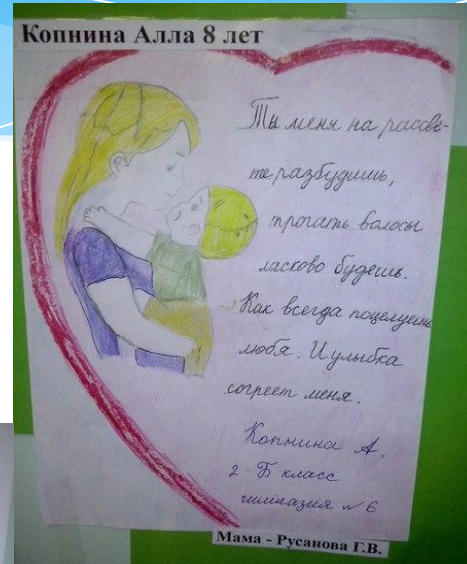 Копнина Алла 8 лет
Ты меня на рассве-
те разбудишь,
трогать волосы
ласково будешь.
Как всегда поцелуешь
любя. И улыбка
согреет меня.
Копнина А.
2-Б класс
гимназия № 6
Мама - Русанова Г.В.